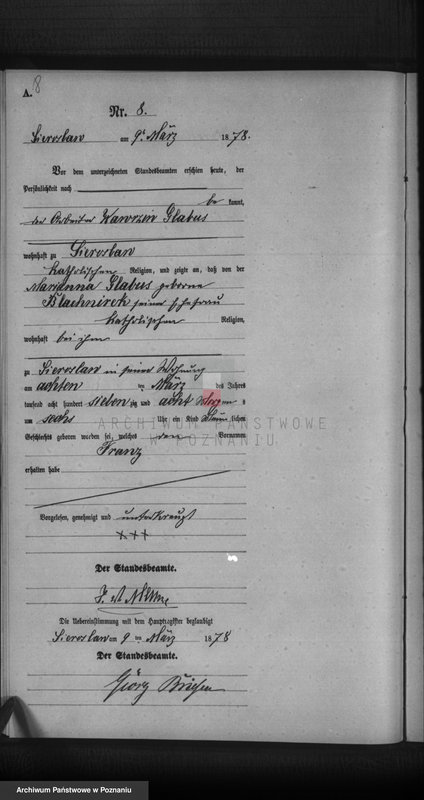 A. 8
Nr. 8.
Sieroslaw am 9t März 1878.
Vor dem unterzeichneten Standesbeamten erschien heute, der
Persönlichkeit nach
be kannt,
der Arbeiter Wawrzen Glabus
wohnhaft zu Sieroslaw
katholischen Religion, und zeigte an, daß von der
Marianna Glabus geborne
seiner Ehefrau
katholischen Religion,
wohnhaft bei ihm
zu Sieroslaw in seiner Wohnung
am achten ten März des Jahres
tausend acht hundert sieben zig und acht Morgens
um sechs Uhr ein Kind männlichen
Geschlechts geboren worden sei, welches den Vornamen
Franz
erhalten habe
ARCHIWUM PAŃSTWOWE
W POZNANIU
Vorgelesen, genehmigt und unterkreuzt
+++
Der Standesbeamte.
Die Uebereinstimmung mit dem Hauptregister beglaubigt
Sieroslaw am 9 ten März 1878
Der Standesbeamte.
Archiwum Państwowe w Poznaniu